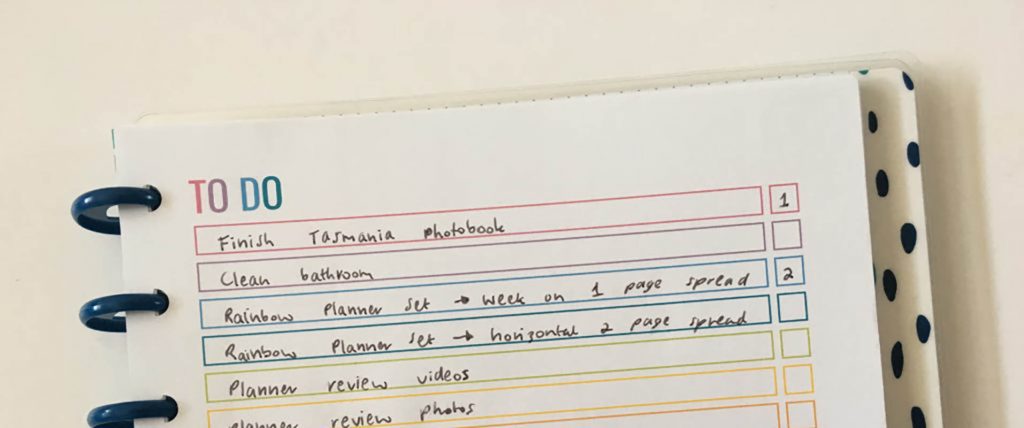 TO DO
Finish Tasmania photobook 1
Clean bathroom
Rainbow Planner set → week on 1 page spread 2
Rainbow Planner set → horizontal 2 page spread
Planner review videos
planner review photos